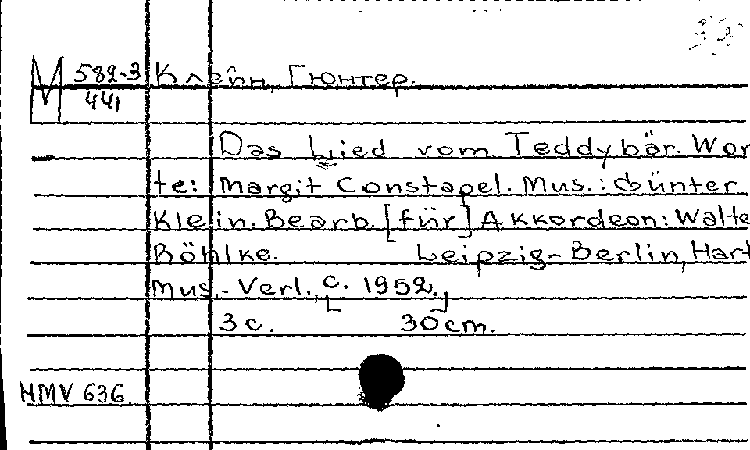 М 582-3
441
Клейн, Гюнтер.
Das Lied vom Teddybär. Wor
te: Margit Constapel. Mus.: Günter
Klein. Bearb. [für] Akkordeon: Walte
Böhlke. Leipzig-Berlin, Hart
Mus.-Verl., [c. 1952.]
3 c. 30 cm.
HMV 636